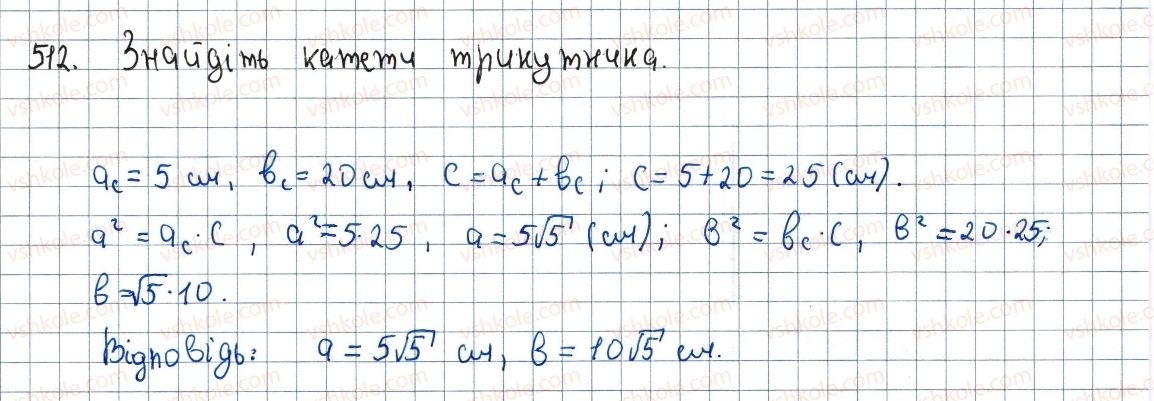 512. Знайдіть катети трикутника.
a_c = 5 см, b_c = 20 см, c = a_c + b_c; c = 5 + 20 = 25 (см).
a² = a_c · c, a² = 5 · 25, a = 5√5 (см); b² = b_c · c, b² = 20 · 25;
b = √5 · 10.
Відповідь: a = 5√5 см, b = 10√5 см.